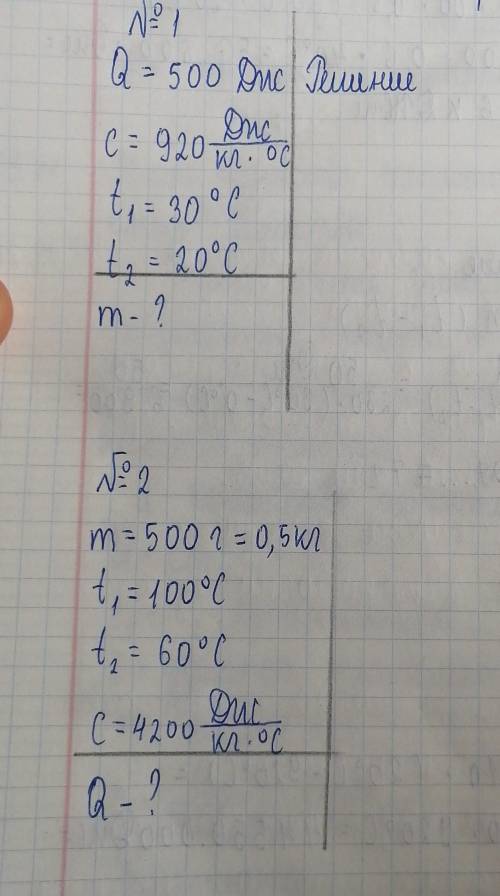 № 1
Q = 500 Дж Решение
c = 920 Дж/кг·°C
t₁ = 30°C
t₂ = 20°C
m - ?
№ 2
m = 500 г = 0,5 кг
t₁ = 100°C
t₂ = 60°C
c = 4200 Дж/кг·°C
Q - ?